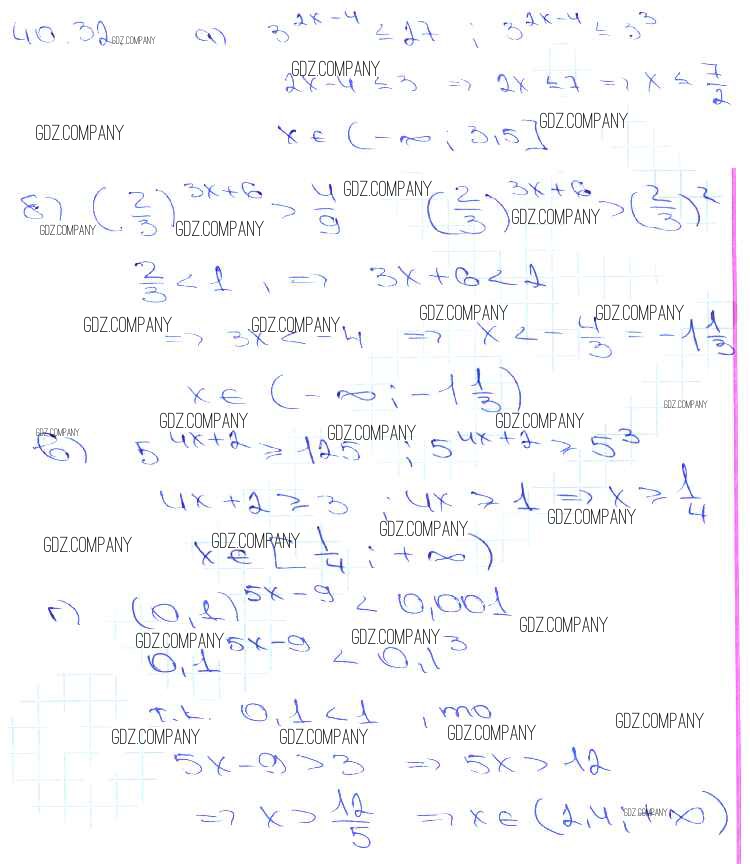 40.32 а) 3^{2x-4} ≤ 27 ; 3^{2x-4} ≤ 3^3
GDZ.COMPANY
GDZ.COMPANY
2x-4 ≤ 3 => 2x ≤ 7 => x ≤ 7/2
GDZ.COMPANY GDZ.COMPANY
x ∈ (-∞ ; 3,5]
б) (2/3)^{3x+6} > 4/9 (2/3)^{3x+6} > (2/3)^2
GDZ.COMPANY GDZ.COMPANY GDZ.COMPANY GDZ.COMPANY
2/3 < 1 , => 3x+6 < 2
GDZ.COMPANY GDZ.COMPANY GDZ.COMPANY GDZ.COMPANY
=> 3x < -4 => x < -4/3 = -1 1/3
x ∈ (-∞ ; -1 1/3)
GDZ.COMPANY
GDZ.COMPANY GDZ.COMPANY GDZ.COMPANY GDZ.COMPANY
в) 5^{4x+2} ≥ 125 ; 5^{4x+2} ≥ 5^3
4x+2 ≥ 3 ; 4x ≥ 1 => x ≥ 1/4
GDZ.COMPANY GDZ.COMPANY GDZ.COMPANY GDZ.COMPANY
x ∈ [1/4 ; +∞)
г) (0,1)^{5x-9} < 0,001
GDZ.COMPANY GDZ.COMPANY GDZ.COMPANY
0,1^{5x-9} < 0,1^3
т.к. 0,1 < 1 , то
GDZ.COMPANY GDZ.COMPANY GDZ.COMPANY GDZ.COMPANY
5x-9 > 3 => 5x > 12
=> x > 12/5 => x ∈ (2,4 ; +∞)
GDZ.COMPANY